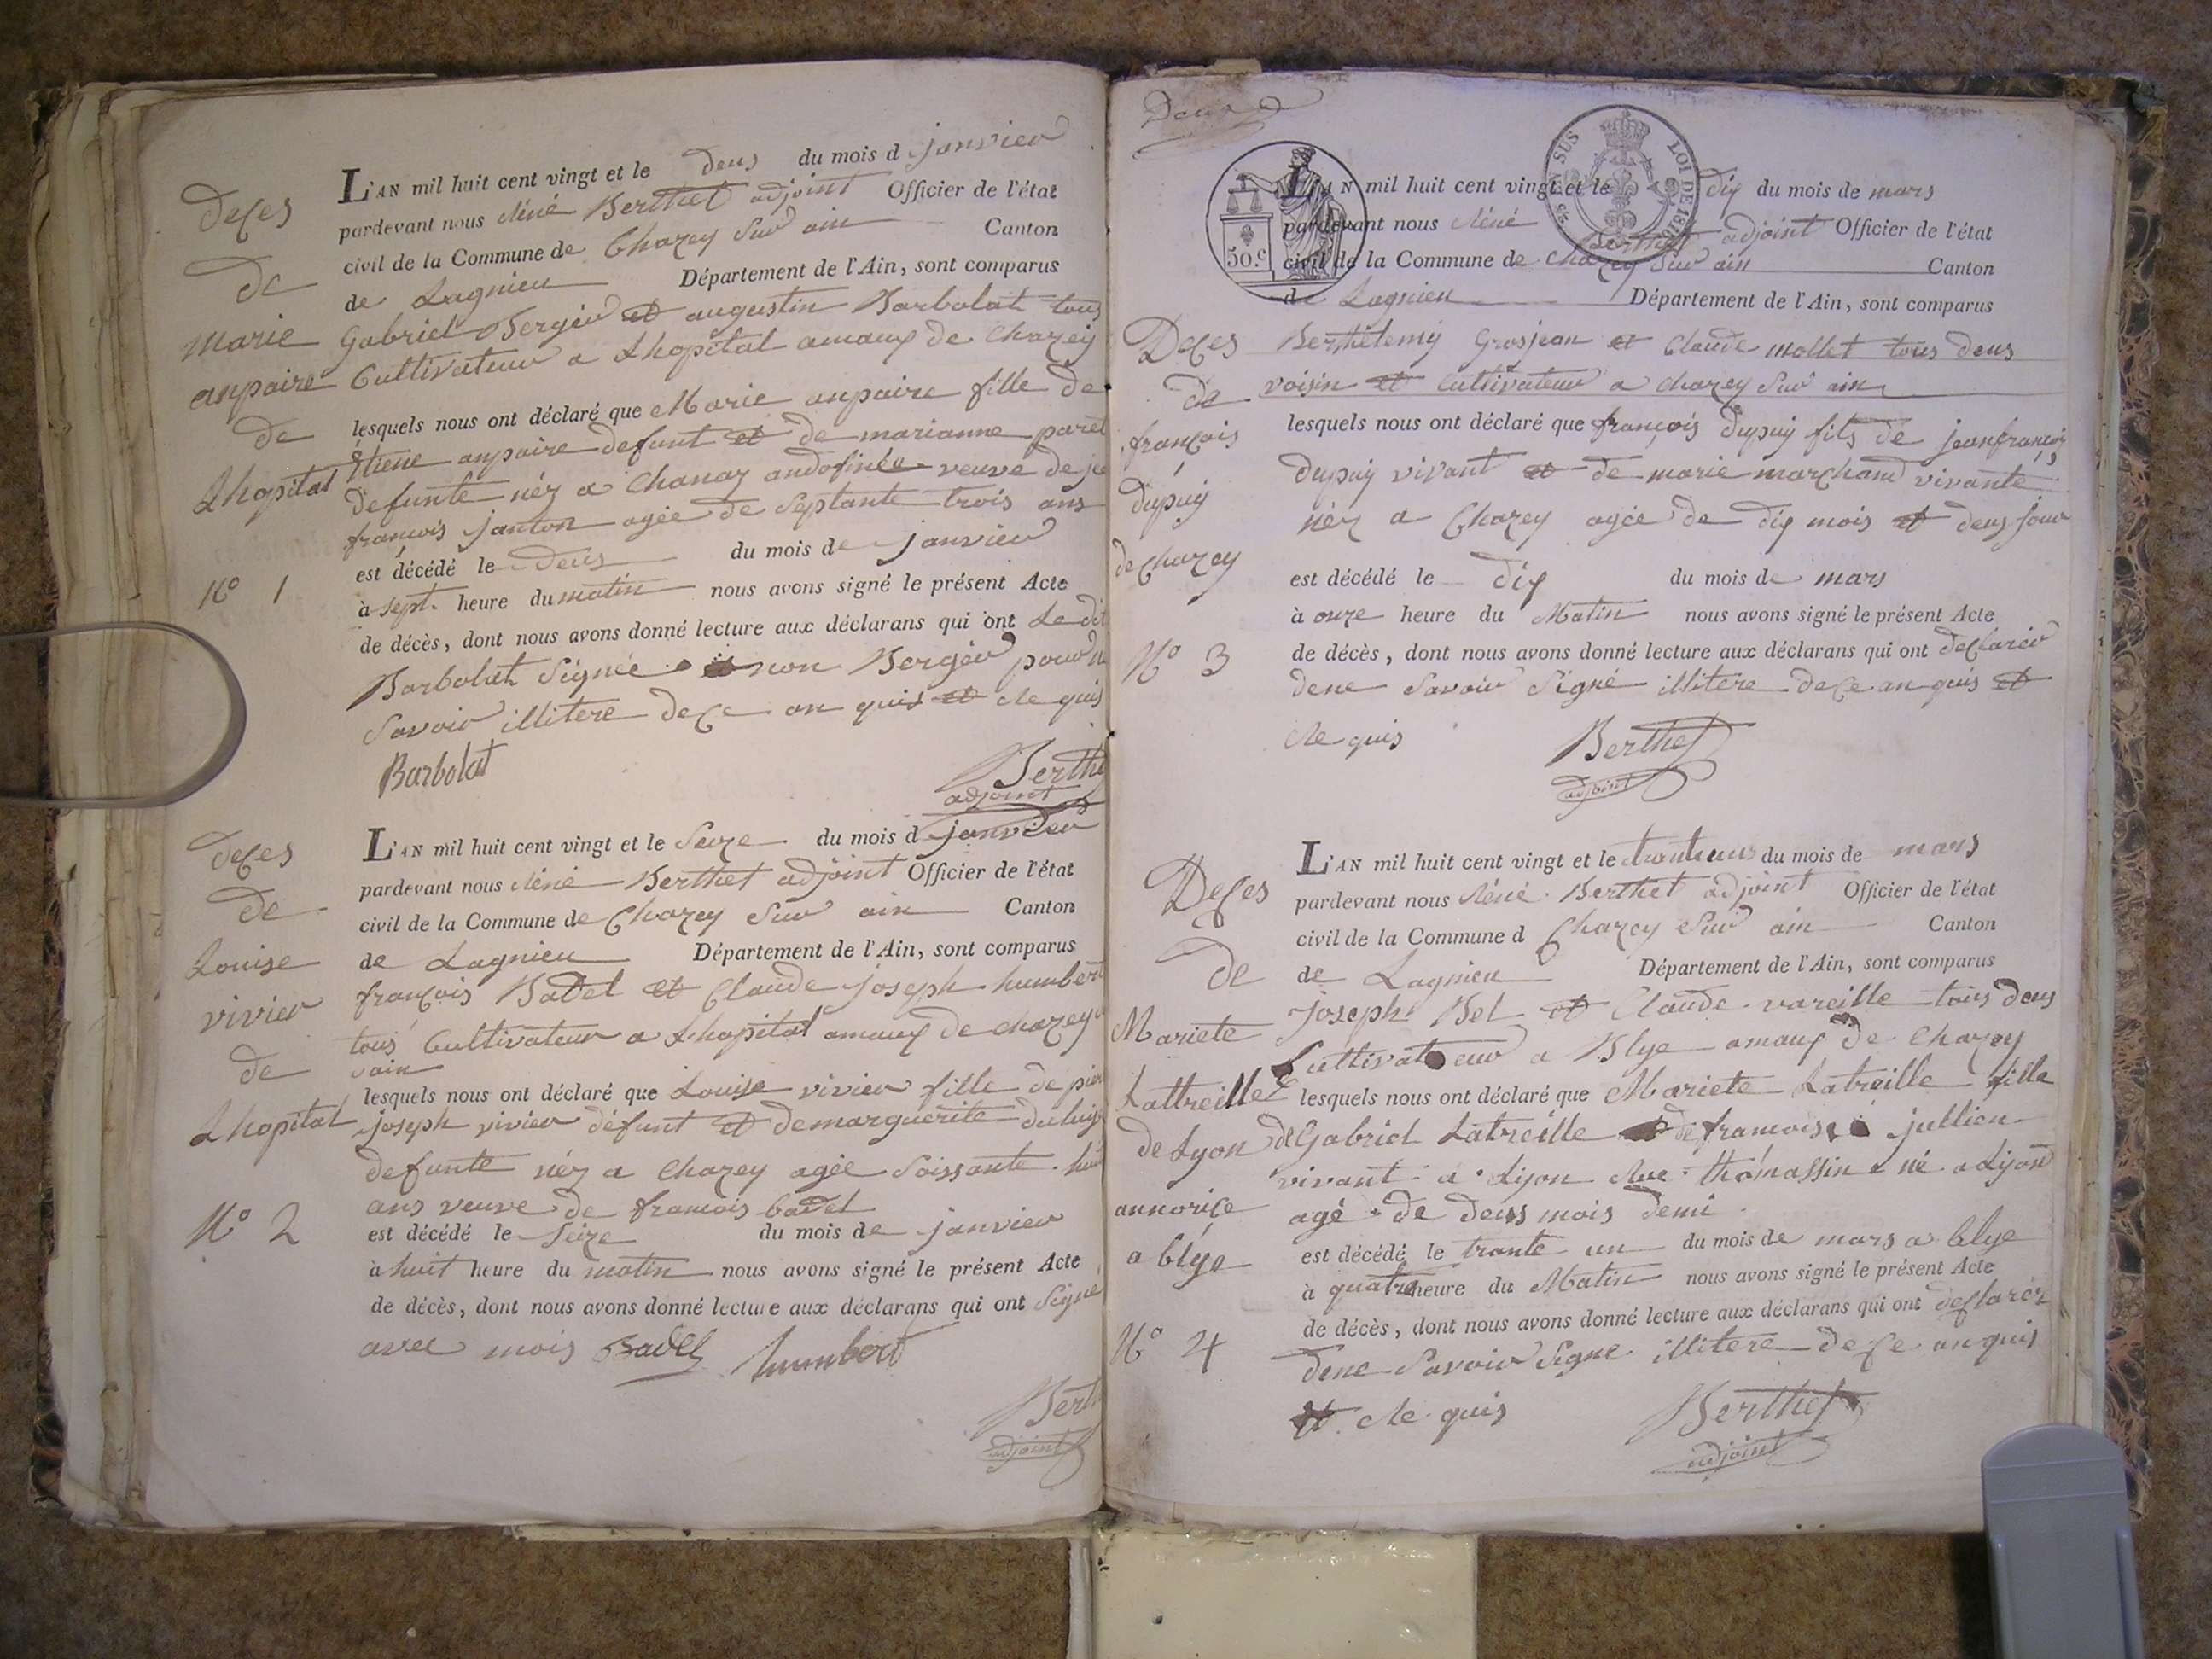 Deces
de
marie
anpaire
de
Lhopital
N° 1
L'AN mil huit cent vingt et le deus du mois d janvier
pardevant nous Réné Berthet adjoint Officier de l'état
civil de la Commune de Chazey Sur ain Canton
de Lagnieu Département de l'Ain, sont comparus
Gabriel Bergér et augustin Barbolat tous
Cultivateur a Lhopital amaux de Chazey
lesquels nous ont déclaré que Marie anpaire fille de
Etiene anpaire defunt et de marianne paret
defunte néz a Chanaz andofinée veuve de je
francois janton agée de Septante trois ans
est décédé le Deus du mois de janvier
à sept heure du matin nous avons signé le présent Acte
de décès, dont nous avons donné lecture aux déclarans qui ont Le dit
Barbolat Signée non Bergér pour
Savoir illitere dece an quis et Re quis
Barbolat
Berthe
adjoint
deces
de
Louise
vivier
de
Lhopital
N° 2
L'AN mil huit cent vingt et le Seize du mois d janvier
pardevant nous Réné Berthet adjoint Officier de l'état
civil de la Commune de Chazey Sur ain Canton
de Lagnieu Département de l'Ain, sont comparus
françois Badel et Claude joseph humbert
tous Cultivateur a Lhopital amaux de chazey
sain
lesquels nous ont déclaré que Louise vivier fille de pier
joseph vivier défunt et demarguerite
defunte néz a Chazey agée Soissante huit
ans veuve de francois badel
est décédé le Seize du mois de janvier
à huit heure du matin nous avons signé le présent Acte
de décès, dont nous avons donné lecture aux déclarans qui ont Signe
avec mois Badel humbert
Berth
adjoint
Deux
SUS LOI DE 1816
50.c
L'AN mil huit cent vingt et le dix du mois de mars
pardevant nous Réné Berthet adjoint Officier de l'état
civil de la Commune de Chazey Sur ain Canton
de Lagnieu Département de l'Ain, sont comparus
Deces
de
françois
dupuy
de Chazey
N° 3
Berthelemy Grosjean et Claude mollet tous deus
voisin et Cultivateur a chazey Sur ain
lesquels nous ont déclaré que françois dupuy fils de jeanfrançois
dupuy vivant et de marie marchand vivante
néz a Chazey agée de dix mois et deus jour
est décédé le dix du mois de mars
à onze heure du Matin nous avons signé le présent Acte
de décès, dont nous avons donné lecture aux déclarans qui ont declarér
dene Savoir Signé illitere dece an quis et
Re quis
Berthet
adjoint
Deces
de
Mariete
Lattreille
de Lyon
annorice
a blye
N° 4
L'AN mil huit cent vingt et le du mois de mars
pardevant nous Réné Berthet adjoint Officier de l'état
civil de la Commune d Chazey Sur ain Canton
de Lagnieu Département de l'Ain, sont comparus
joseph Bel et Claude vareille tous deus
Cultivateur a Blye amaux de Chazey
lesquels nous ont déclaré que Mariete Latreille fille
de Gabriel Latreille de francoise jullien
vivant a Lyon Rue thomassin né a Lyon
agé de deus mois demi
est décédé le trante un du mois de mars a blye
à quatre heure du Matin nous avons signé le présent Acte
de décès, dont nous avons donné lecture aux déclarans qui ont declaréz
dene Savoir Signe illitere dece an quis
et Re quis
Berthet
adjoint